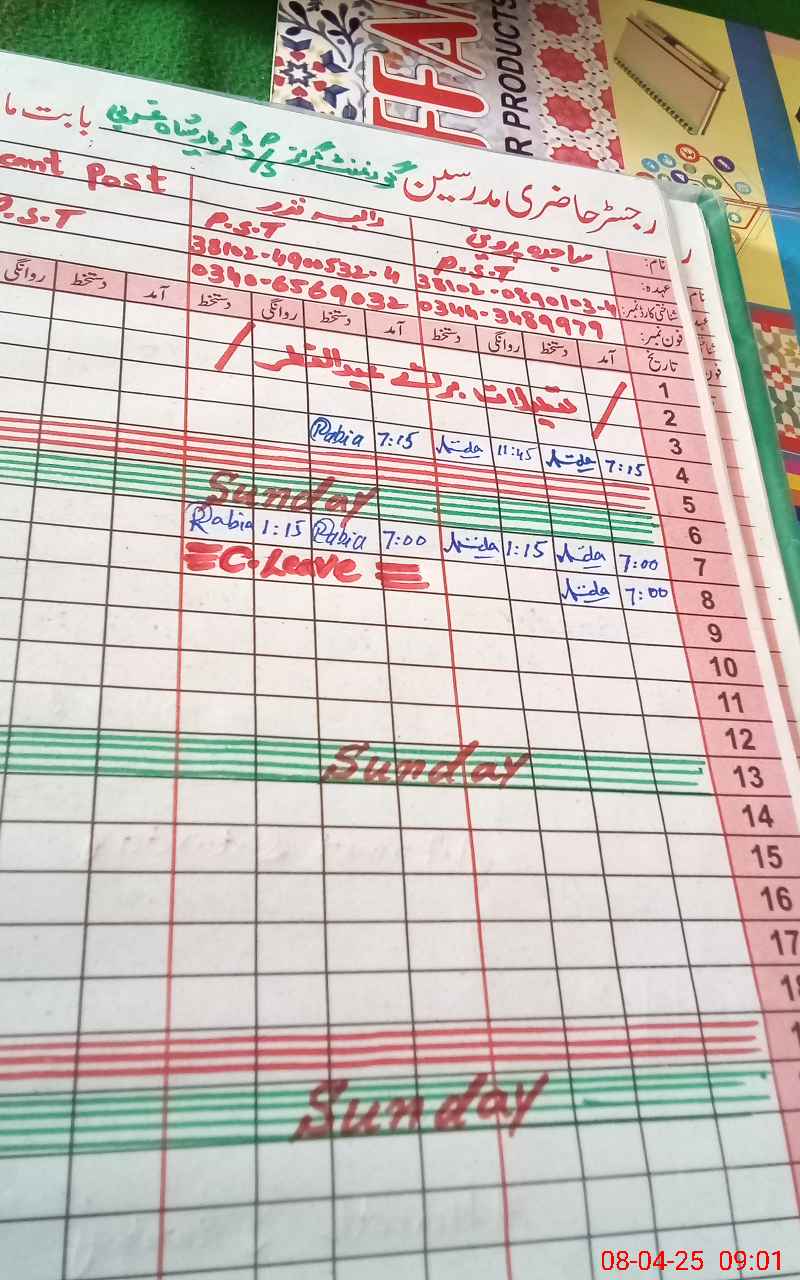 FFAN
R PRODUCTS
رجسٹر حاضری مدرسین گورنمنٹ گرلز بابت ما
نام: ساجدہ پروین رابعہ نذر cant Post
عہدہ: P.S.T P.S.T P.S.T
شناختی کارڈ نمبر: 38102-0890103-4 38102-4900532-4
فون نمبر: 0344-3489979 0340-6569032
تاریخ آمد دستخط روانگی دستخط آمد دستخط روانگی دستخط آمد دستخط روانگی
1
2 تعطیلات برائے عیدالفطر
3
4 7:15 11:45 7:15 Rabia
5
6 Sunday
7 7:00 1:15 7:00 Rabia 1:15 Rabia
8 7:00 C.Leave
9
10
11
12
13 Sunday
14
15
16
17
18
Sunday
08-04-25 09:01